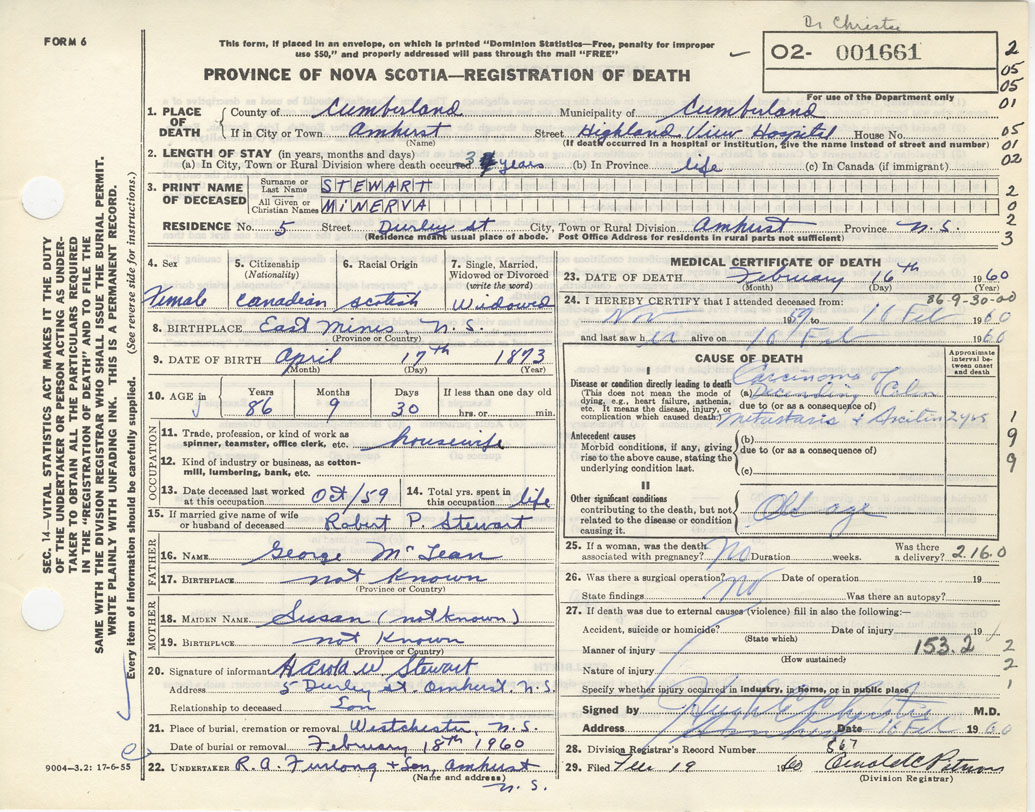 Dr Christie
FORM 6
This form, if placed in an envelope, on which is printed "Dominion Statistics—Free, penalty for improper
use $50," and properly addressed will pass through the mail "FREE"
PROVINCE OF NOVA SCOTIA—REGISTRATION OF DEATH
O2- 001661
For use of the Department only
2
05
05
01
05
01
02
2
0
2
3
1. PLACE OF DEATH { County of Cumberland Municipality of Cumberland
If in City or Town Amherst Street Highland View Hospital House No.
(Name) (If death occurred in a hospital or institution, give the name instead of street and number)
2. LENGTH OF STAY (in years, months and days)
(a) In City, Town or Rural Division where death occurred 3 years (b) In Province life (c) In Canada (if immigrant)
3. PRINT NAME OF DECEASED { Surname or Last Name STEWART
All Given or Christian Names MINERVA
RESIDENCE No. 5 Street Durley St City, Town or Rural Division Amherst Province N.S.
(Residence means usual place of abode. Post Office Address for residents in rural parts not sufficient)
4. Sex 5. Citizenship (Nationality) 6. Racial Origin 7. Single, Married, Widowed or Divorced (write the word)
Female Canadian scotish Widowed
8. BIRTHPLACE East Mines, N.S.
(Province or Country)
9. DATE OF BIRTH April 17th 1873
(Month) (Day) (Year)
10. AGE Years Months Days If less than one day old
86 9 30 hrs. or min.
OCCUPATION
11. Trade, profession, or kind of work as spinner, teamster, office clerk, etc. housewife
12. Kind of industry or business, as cotton-mill, lumbering, bank, etc.
13. Date deceased last worked at this occupation Oct/59 14. Total yrs. spent in this occupation life
15. If married give name of wife or husband of deceased Robert P. Stewart
FATHER
16. NAME George McLean
17. BIRTHPLACE not known
(Province or Country)
MOTHER
18. MAIDEN NAME Susan (not known)
19. BIRTHPLACE not known
(Province or Country)
20. Signature of informant Harold W Stewart
Address 5 Durley St. Amherst. N.S.
Relationship to deceased Son
21. Place of burial, cremation or removal Westchester, N.S.
Date of burial or removal February 18th 1960
22. UNDERTAKER R.A. Furlong & Son, Amherst
(Name and address) N.S.
MEDICAL CERTIFICATE OF DEATH
23. DATE OF DEATH February 16th 1960
(Month) (Day)
86-9-30-00
24. I HEREBY CERTIFY that I attended deceased from:
Nov 1959 to 16 Feb 1960
and last saw her alive on 16 Feb 1960
CAUSE OF DEATH
Approximate interval between onset and death
I
Disease or condition directly leading to death
(This does not mean the mode of dying, e.g., heart failure, asthenia, etc. It means the disease, injury, or complication which caused death.)
(a) Carcinoma of Descending Colon
due to (or as a consequence of)
Metastasis & Ascites 2 yrs
Antecedent causes
Morbid conditions, if any, giving rise to the above cause, stating the underlying condition last.
(b)
due to (or as a consequence of)
(c)
1
9
9
9
II
Other significant conditions
contributing to the death, but not related to the disease or condition causing it.
Old age
25. If a woman, was the death associated with pregnancy? No Duration weeks. Was there a delivery? 216.0
26. Was there a surgical operation? No Date of operation 19
State findings Was there an autopsy?
27. If death was due to external causes (violence) fill in also the following:—
Accident, suicide or homicide? Date of injury 19
(State which)
Manner of injury 153.2
(How sustained)
Nature of injury
2
2
1
Specify whether injury occurred in industry, in home, or in public place
Signed by Hugh E Christie M.D.
Address Date 16 Feb 1960
28. Division Registrar's Record Number 867
29. Filed Feb 19 1960
(Division Registrar)
SEC. 14—VITAL STATISTICS ACT MAKES IT THE DUTY
OF THE UNDERTAKER OR PERSON ACTING AS UNDER-
TAKER TO OBTAIN ALL THE PARTICULARS REQUIRED
IN THE "REGISTRATION OF DEATH" AND TO FILE THE
SAME WITH THE DIVISION REGISTRAR WHO SHALL ISSUE THE BURIAL PERMIT.
WRITE PLAINLY WITH UNFADING INK. THIS IS A PERMANENT RECORD.
Every item of information should be carefully supplied. (See reverse side for instructions.)
9004-3.2: 17-6-55